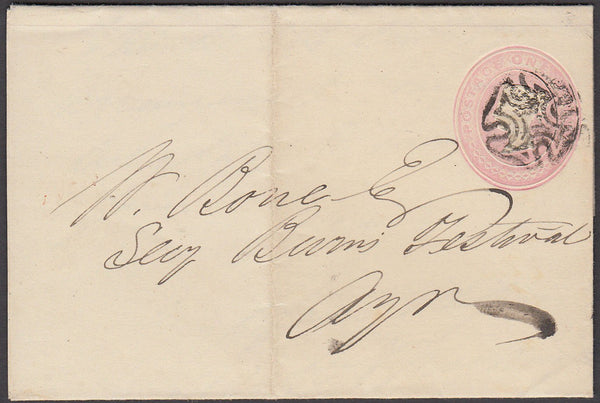 POSTAGE ONE
W. Bone Esq
Secy Burns Festival
Ayr